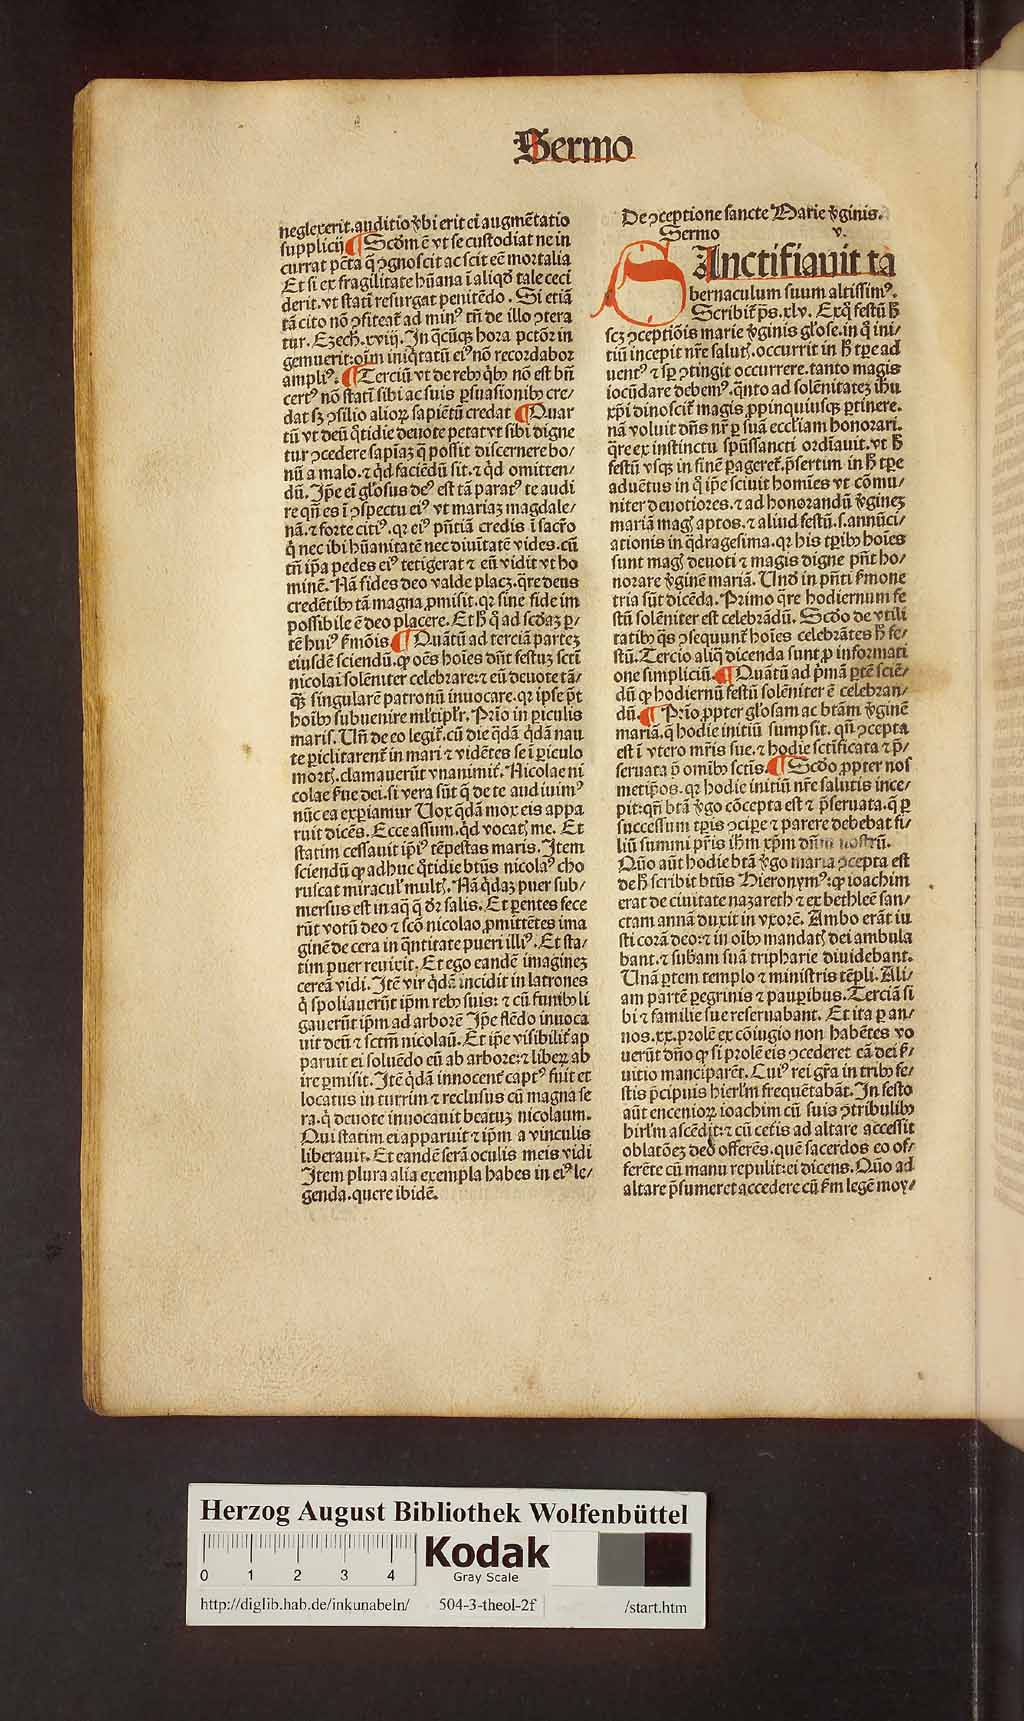 Sermo
neglexerit. auditio v̾bi erit ei augmētatio
supplicij ¶ Scd̄m ē vt se custodiat ne in
currat pctā q̄ ꝯgnoscit ac scit eē mortalia
Et si ex fragilitate hūana ī aliqd̄ tale ceci
derit. vt statī resurgat penitēdo. Si etiā
tā cito nō ꝯfiteat̄ ad minꝰ tn̄ de illo ꝯtera
tur. Ezech̄. xviij. In q̄cūqꝫ hora pctōr in
gemuerit: oīm iniq̄tatū eiꝰ nō recordabor
ampliꝰ. ¶ Terciū vt de rebꝰ q̄bꝰ nō est bn̄
certꝰ nō statī sibi ac suis ꝑsuasionibꝰ cre/
dat sꝫ ꝯsilio alioꝝ sapiētū credat ¶ Quar
tū vt deū q̄tidie deuote petat vt sibi digne
tur ꝯcedere sapiaꝫ q̄ possit discernere bo/
nū a malo. ⁊ qd̄ faciēdū sit. ⁊ qd̄ omitten/
dū. Ip̄e eī gl̄osus deꝰ est tā paratꝰ te audi
re qn̄ es ī ꝯspectu eiꝰ vt mariaꝫ magdale/
nā. ⁊ forte citiꝰ. qꝛ eiꝰ pn̄tiā credis ī sacr̄o
q̄ nec ibi hūanitatē nec diuitatē vides. cū
tn̄ ip̄a pedes eiꝰ tetigerat ⁊ eū vidit vt ho
minē. Nā fides deo valde placꝫ. q̄re deus
credētibꝰ tā magna ꝓmisit. qꝛ sine fide im
possibile ē deo placere. Et h̄ q̄ ad scd̄aꝫ ꝑ/
tē huiꝰ ẜmōis ¶ Quātū ad terciā parteꝫ
eiusdē sciendū. ꝙ oēs hoīes dn̄t festuꝫ scti
nicolai solēniter celebrare: ⁊ eū deuote tā/
q̄ꝫ singularē patronū inuocare. qꝛ ipse pt̄
hoībꝰ subuenire ml̄tiplr̄. Prīo in ꝑiculis
maris. Vn̄ de eo legit̄. cū die q̄dā q̄dā nau
te ꝑiclitarent̄ in mari ⁊ vidētes se ī ꝑiculo
mortꝭ. clamauerūt vnanimit̄. Nicolae ni
colae ẜue dei. si vera sūt q̄ de te audiuimꝰ
nūc ea exꝑiamur Vox q̄dā mox eis appa
ruit dicēs. Ecce assum. qd̄ vocatꝭ me. Et
statim cessauit ip̄iꝰ tēpestas maris. Item
sciendū ꝙ adhuc q̄tidie btūs nicolaꝰ cho
ruscat miracul̄ multꝭ. Nā q̄daꝫ puer sub/
mersus est in aq̄ q̄ dr̄ salis. Et ꝑentes fece
rūt votū deo ⁊ scō nicolao ꝓmittētes ima
ginē de cera in q̄ntitate pueri illiꝰ. Et sta/
tim puer reuixit. Et ego eandē imagineꝫ
cereā vidi. Itē vir q̄dā incidit in latrones
q̄ spoliauerūt ip̄m rebꝰ suis: ⁊ cū funibꝰ li
gauerūt ip̄m ad arborē Ip̄e flēdo inuoca
uit deū ⁊ sctm̄ nicolaū. Et ip̄e visibilit̄ ap
paruit ei soluēdo eū ab arbore: ⁊ liberꝫ ab
ire ꝑmisit. Itē q̄dā innocenr̄ captꝰ fuit et
locatus in turrim ⁊ reclusus cū magna se
ra. q̄ deuote inuocauit beatuꝫ nicolaum.
Qui statim ei apparuit ⁊ ip̄m a vinculis
liberauit. Et eandē serā oculis meis vidi
Item plura alia exempla habes in eiꝰ le/
genda. quere ibidē.
De ꝯceptione sancte Marie v̾ginis.
Sermo v.
SAnctifiauit ta
bernaculum suum altissimꝰ.
Scribit̄ ps̄. xlv. Exq̄ festū h̄
scꝫ ꝯceptiōis marie v̾ginis gl̄ose. in q̄ ini/
tiū incepit nr̄e salutꝭ. occurrit in h̄ tꝑe ad
uentꝰ ⁊ sꝑ ꝯtingit occurrere. tanto magis
iocūdare debemꝰ. q̄nto ad solēnitateꝫ ih̄u
xp̄i dinoscit̄ magis ꝓpinquiusqꝫ ꝑtinere.
nā voluit dn̄s nr̄ ꝑ suā eccl̄iam honorari.
q̄re ex instinctu spūssancti ordīauit. vt h̄
festū vsqꝫ in finē ꝑageret̄. p̄sertim in h̄ tꝑe
aduētus in q̄ ip̄e sciuit homīes vt cōmu/
niter deuotiores. ⁊ ad honorandū v̾gineꝫ
mariā magꝭ aptos. ⁊ aliud festū. s. annūci/
ationis in q̄dragesima. qꝛ his tꝑibꝰ hoīes
sunt magꝭ deuoti ⁊ magis digne pn̄t ho/
norare v̾ginē mariā. Vnd̄ in pn̄ti ẜmone
tria sūt dicēda. Primo q̄re hodiernum fe
stū solēniter est celebrādū. Scd̄o de vtili
tatibꝰ q̄s ꝯsequunt̄ hoīes celebrātes h̄ fe/
stū. Tercio aliq̄ dicenda sunt ꝓ informati
one simpliciū. ¶ Quātū ad p̄mā ꝑtē sciē/
dū ꝙ hodiernū festū solēniter ē celebran/
dū. ¶ Prīo ꝓpter gl̄osam ac btām v̾ginē
mariā. q̄ hodie initiū sumpsit. qn̄ ꝯcepta
est ī vtero mr̄is sue. ⁊ hodie sctificata ⁊ p̄/
seruata p̄ omībꝰ sctīs. ¶ Scd̄o ꝓpter nos
metip̄os. qꝛ hodie initiū nr̄e salutis ince/
pit: qn̄ btā v̾go cōcepta est ⁊ p̄seruata. q̄ ꝑ
successum tꝑis ꝯcipe ⁊ parere debebat fi/
liū summi pr̄is ih̄m xp̄m dn̄m nostrū.
Quō aūt hodie btā v̾go maria ꝯcepta est
de h̄ scribit btūs Hieronymꝰ: ꝙ ioachim
erat de ciuitate nazareth ⁊ ex bethleē san/
ctam annā duxit in vxorē. Ambo erāt iu
sti corā deo: ⁊ in oībꝰ mandatꝭ dei ambula
bant. ⁊ subam̄ suā tripharie diuidebant.
Vnā ꝑtem templo ⁊ ministris tēpli. Ali/
am partē ꝑegrinis ⁊ pauꝑibus. Terciā si
bi ⁊ familie sue reseruabant. Et ita ꝑ an/
nos. xx. prolē ex cōiugio non habētes vo
uerūt dn̄o ꝙ si prolē eis ꝯcederet eā dei ẜ/
uitio manciparēt. Cuiꝰ rei gr̄a in tribꝰ fe/
stis p̄cipuis hierl̄m frequētabāt. In festo
aūt encenioꝝ ioachim cū suis ꝯtribulibꝰ
hirl̄m ascēdit: ⁊ cū cetis̄ ad altare accessit
oblatōeꝫ deo offerēs. quē sacerdos eo of/
ferēte cū manu repulit: ei dicens. Quō ad
altare p̄sumeret accedere cū ẜm legē moy/
Herzog August Bibliothek Wolfenbüttel
0 1 2 3 4
Kodak
Gray Scale
http://diglib.hab.de/inkunabeln/ 504-3-theol-2f /start.htm